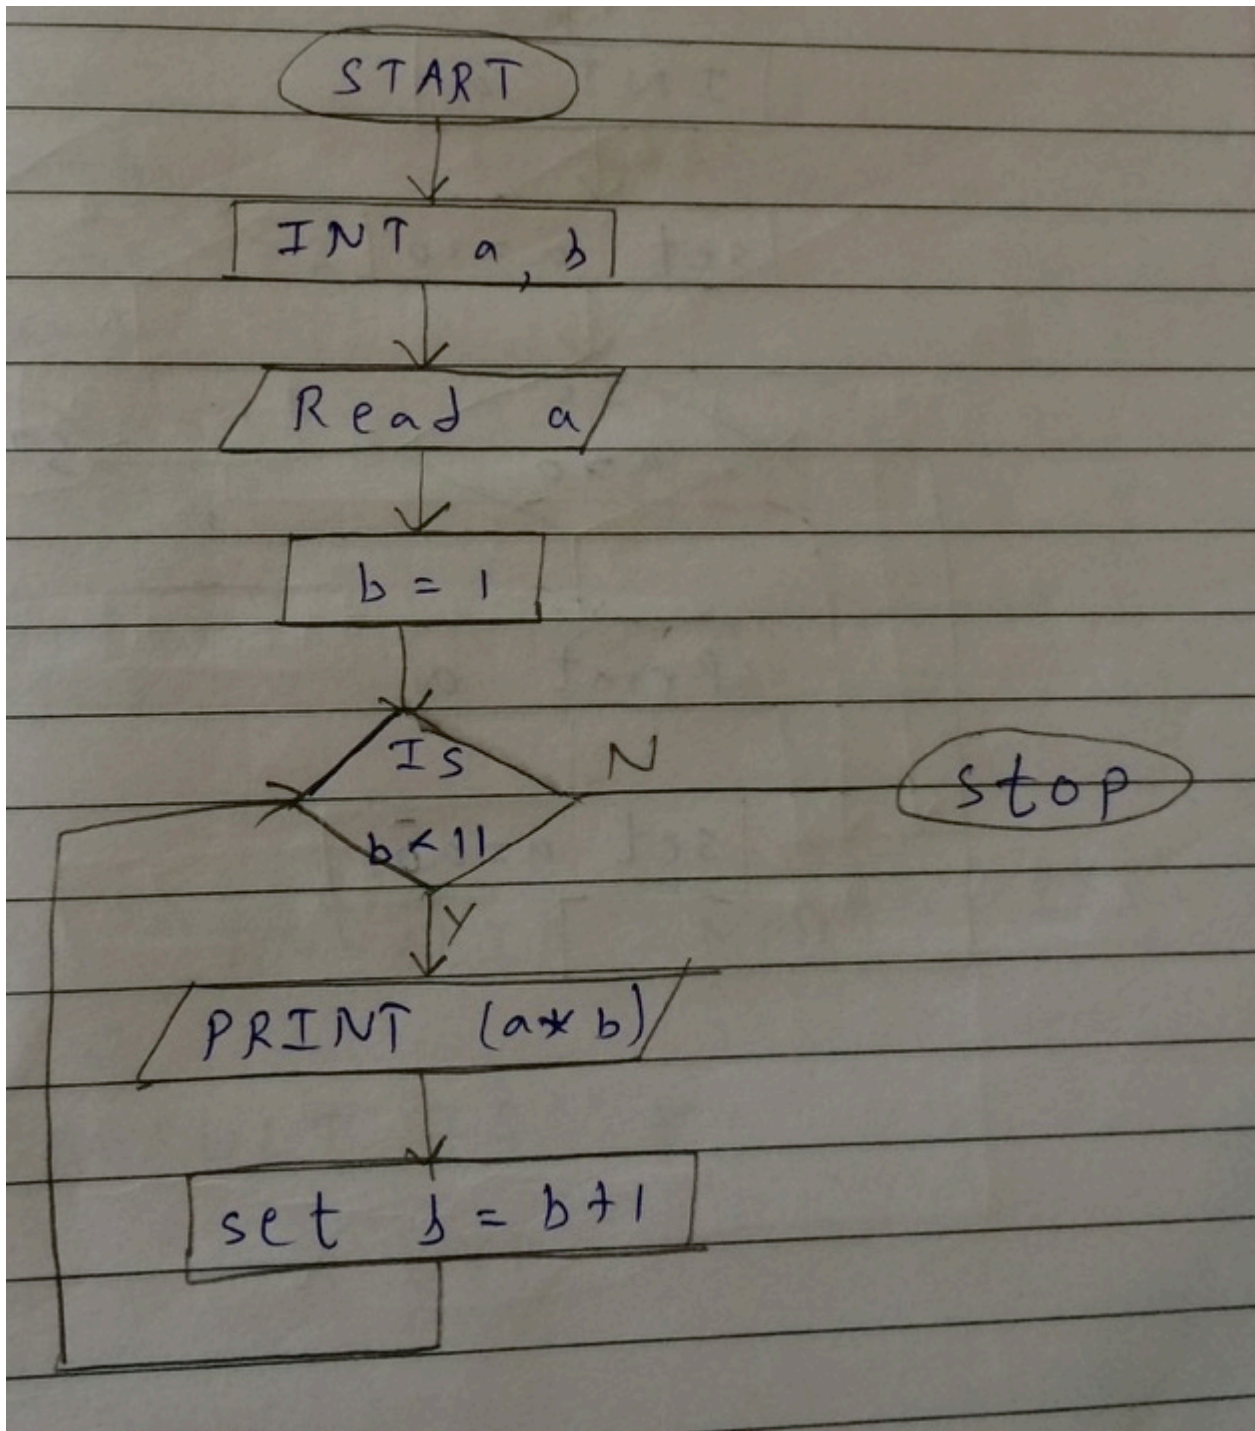 START
INT a, b
Read a
b = 1
Is
b < 11
N
stop
Y
PRINT (a* b)
set b = b+1